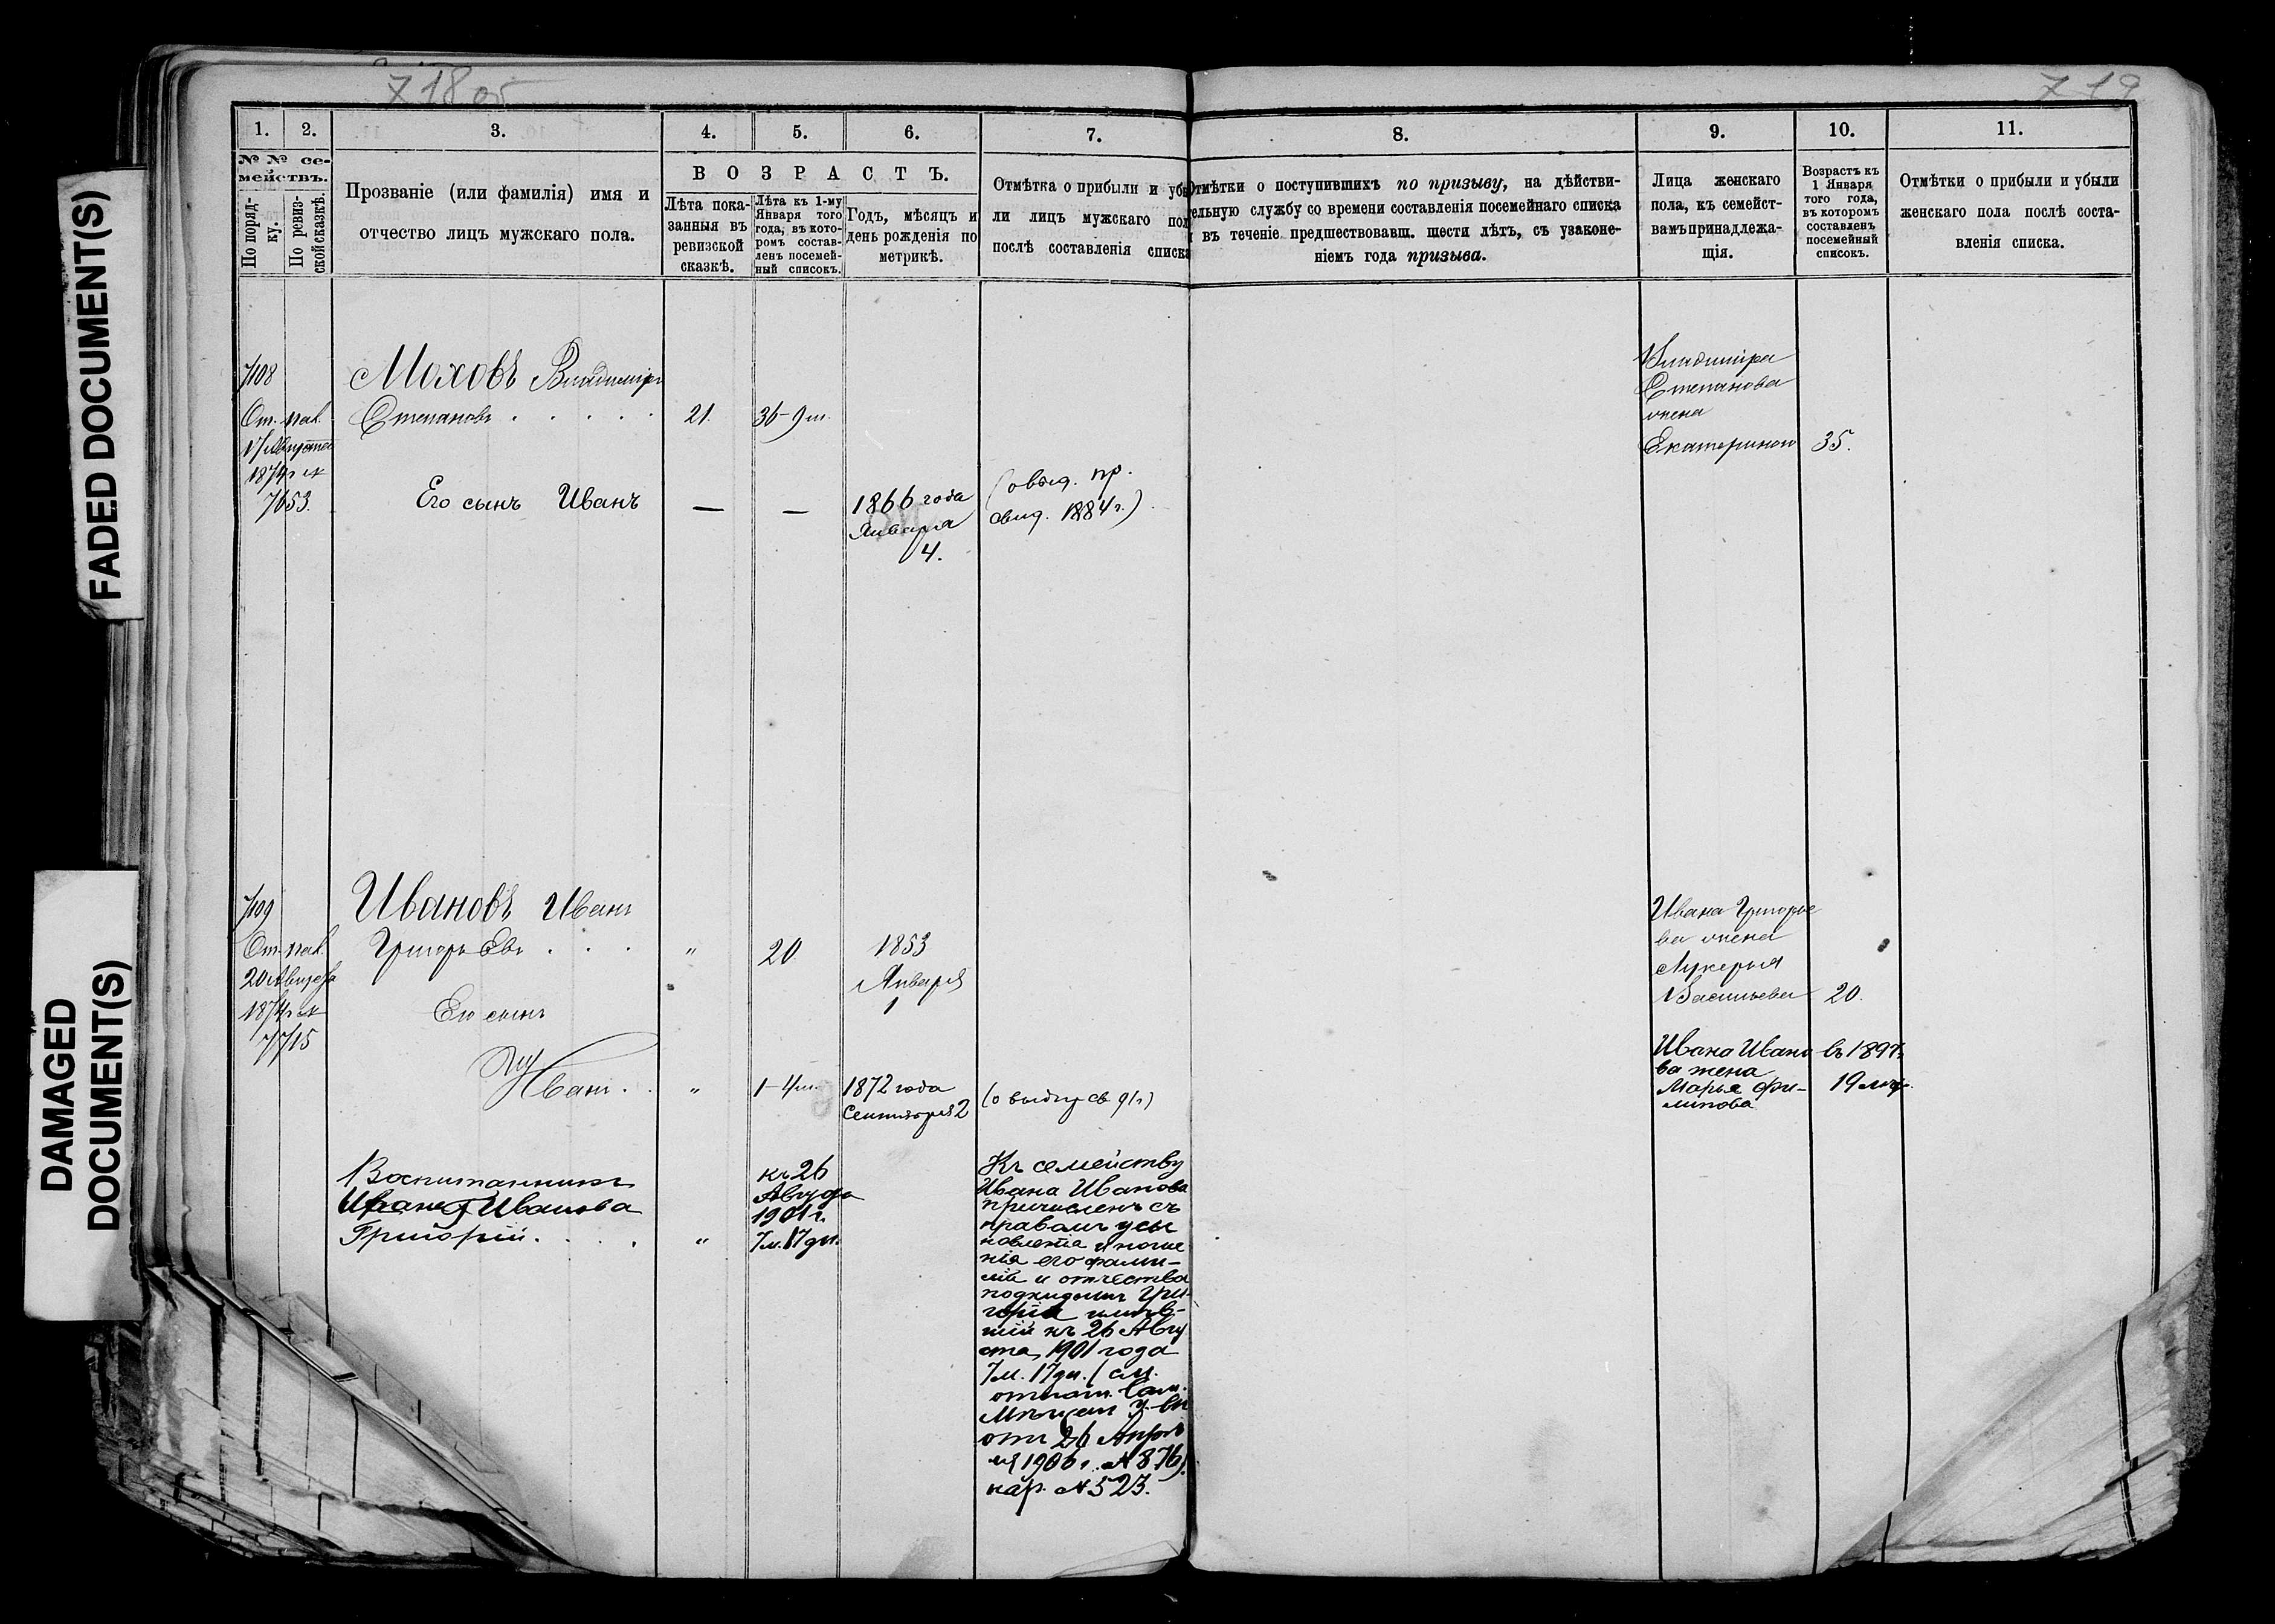 FADED DOCUMENT(S)
DAMAGED
DOCUMENT(S)
718 об
719
1.
2.
3.
4.
5.
6.
7.
8.
9.
10.
11.
№ № се-
мействъ.
По поряд-
ку.
По ревиз-
ской сказкѣ.
Прозваніе (или фамилія) имя и
отчество лицъ мужскаго пола.
ВОЗРАСТЪ.
Лѣта пока-
занныя въ
ревизской
сказкѣ.
Лѣта къ 1-му
Января того
года, въ кото-
ромъ состав-
ленъ посемей-
ный списокъ.
Годъ, мѣсяцъ и
день рожденія по
метрикѣ.
Отмѣтка о прибыли и убы
ли лицъ мужскаго пол
послѣ составленія списка
Отмѣтки о поступившихъ по призыву, на дѣйстви-
тельную службу со времени составленія посемейнаго списка
и въ теченіе предшествовавш. шести лѣтъ, съ узаконе-
ніемъ года призыва.
Лица женскаго
пола, къ семейст-
вамъ принадлежа-
щія.
Возрастъ къ
1 Января
того года,
въ которомъ
составленъ
посемейный
списокъ.
Отмѣтки о прибыли и убыли
женскаго пола послѣ соста-
вленія списка.
7108
От. пал.
17 Августа
1874 г №
7653.
Моховъ Владиміръ
Степановъ . . . . .
21.
36-9 м.
Его сынъ Иванъ
—
—
1866 года
Января
4.
(о выд. пр.
свид. 1884 г.)
Владиміра
Степанова
жена
Екатерина
35.
7109
От. пал.
20 Августа
1874 г №
7715
Ивановъ Иванъ
Григорьевъ . . .
"
20
1853
Января
1
Его сынъ
Иванъ . .
"
1-4 м.
1872 года
Сентября 2
(о выдач св 91 г)
Ивана Григорье
ва жена
Лукерья
Васильева
20.
Ивана Ивано
ва жена
Марья Фи-
липова
въ 1897 г.
19 лѣт.
Воспитанникъ
Ивана Иванова
Григорій . . . .
"
къ 26
Августа
1901 г.
7 м. 17 дн.
Къ семейству
Ивана Иванова
причисленъ съ
правомъ усы
новленія и ноше
нія его фами-
ліи и отчества
подкидышъ Гри-
горій имѣв-
шій къ 26 Авгу
ста 1901 года
7 м. 17 дн. (см.
отнош.
Мѣщан. У-вы
отъ 26 Апрѣ
ля 1906 г. № 876).
кар. № 523.